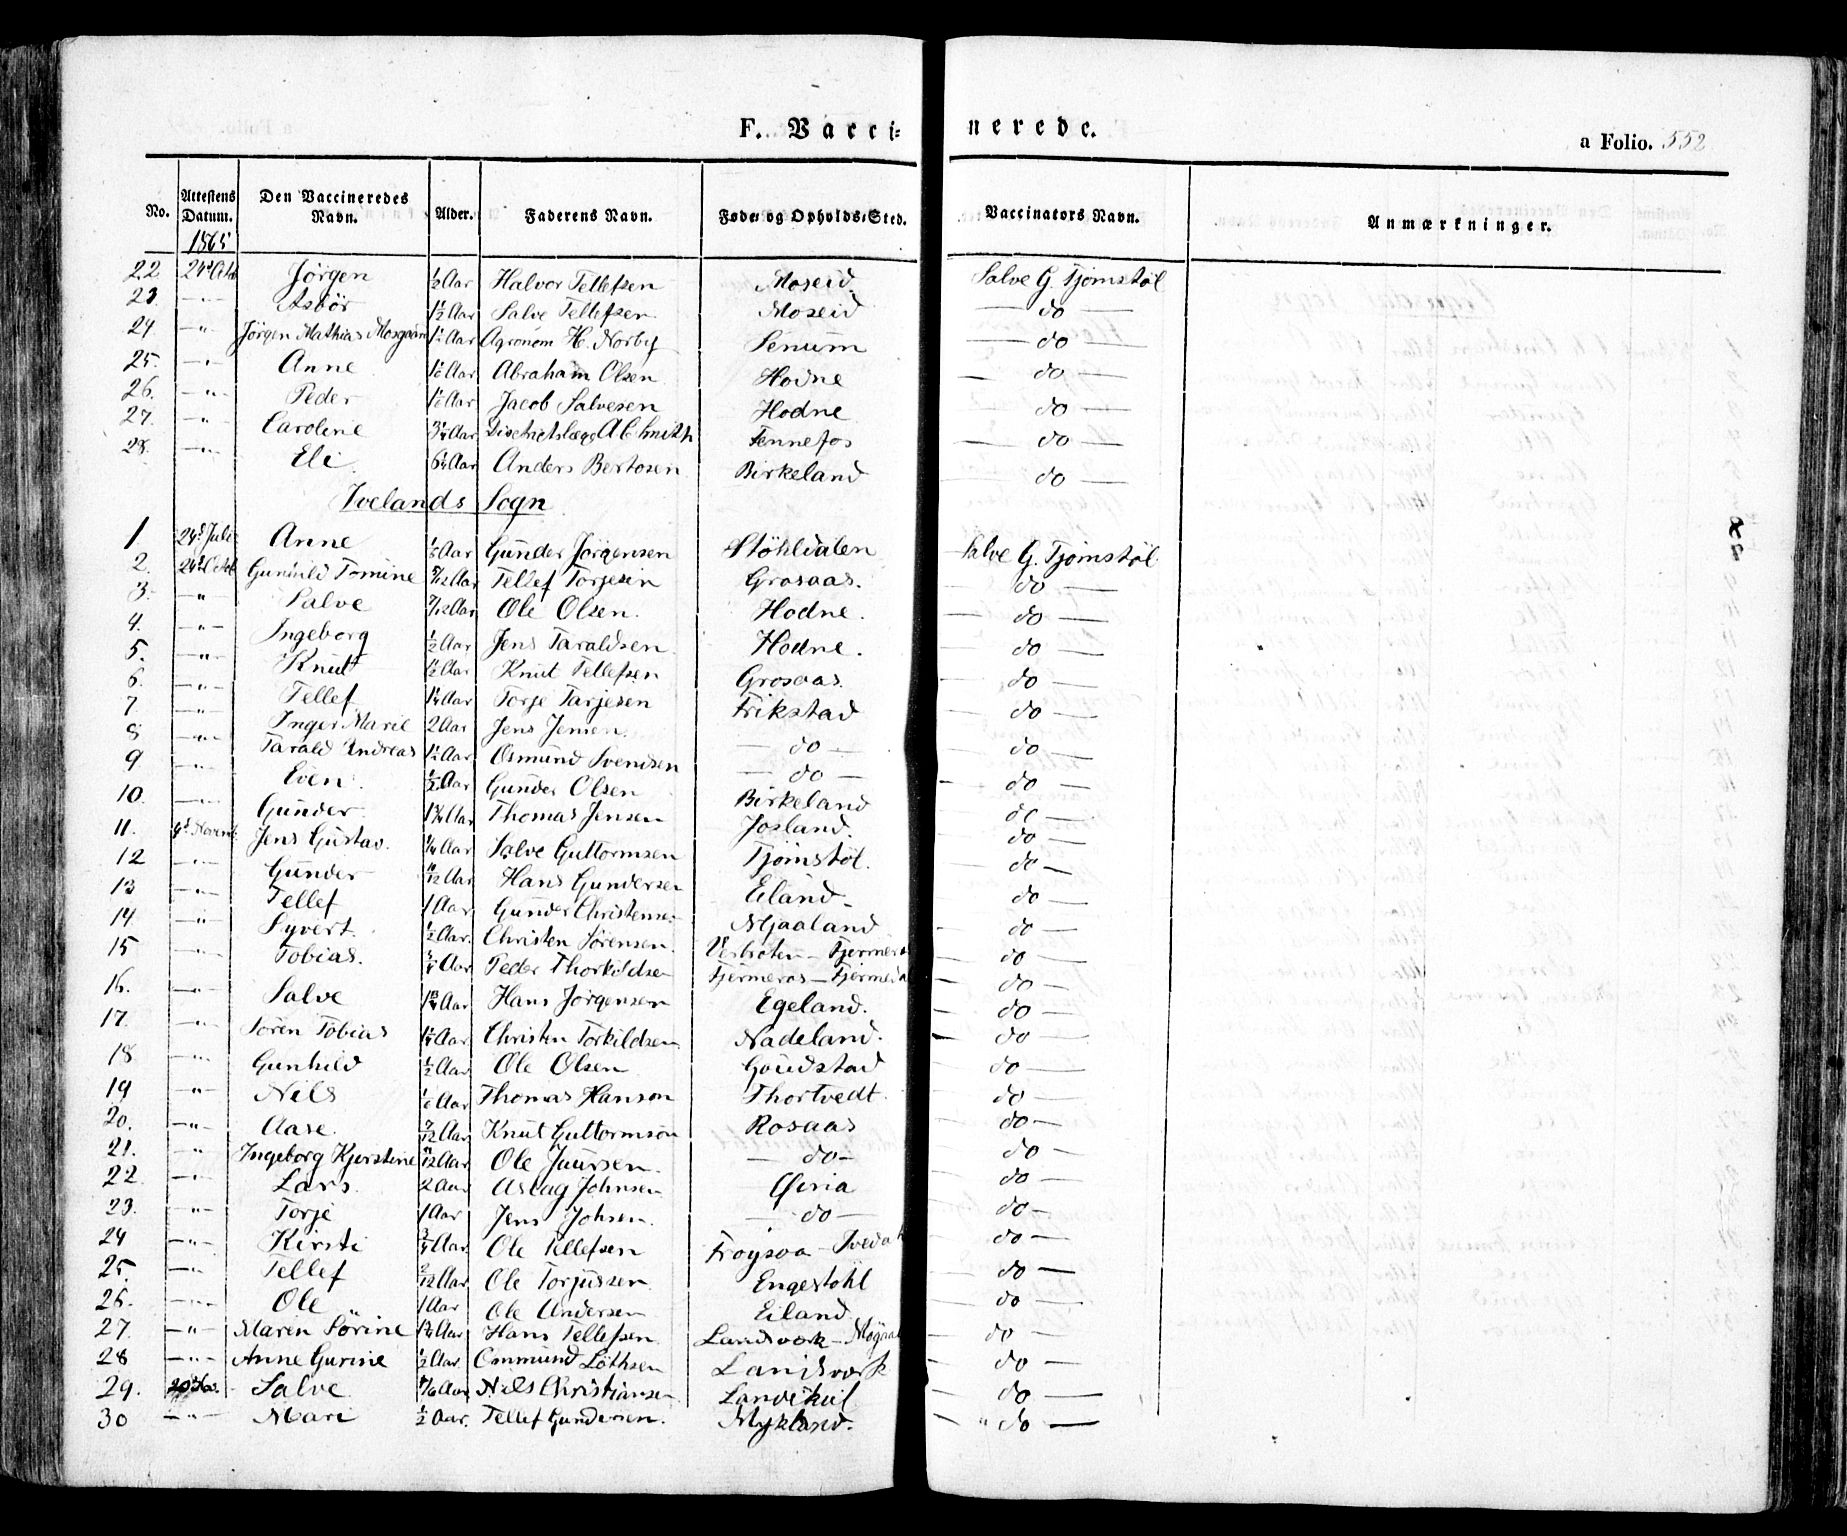 F. Vacci- nerede.
a Folio. 552
No. | Attestens Datum. | Den Vaccineredes Navn. | Alder. | Faderens Navn. | Føde- og Opholds-Sted. | Vaccinators Navn. | Anmærkninger.
1865
22 Jørgen ½ Aar Halvor Tellefsen Moseid Salve G. Tjomstøl
23 - " - Asbör 1½ Aar Salve Tellefsen Moseid do
24 - " - Jörgen Mathias Aar Agronom H. Norby Senum do
25. - " - Anne Aar Abraham Olsen Hodne do
26. - " - Peder Aar Jacob Salvesen Hodne do
27. - " - Caroline Aar Fennefos do
28. - " - Eli Aar Anders Bertosen Birkeland do
Ivelands Sogn
1 24d Juli Anne Aar Gunder Jørgensen Støhldalen Salve G. Tjomstøl
2. 24d Octob Gunhild Tomine Aar Tellef Torjesen Grosaas. do
3. " Salve 7/12 Aar Ole Olsen. Hodne. do
4. - " - Ingeborg ½ Aar Jens Taraldsen Hodne. do
5. - " - Knut 1½ Aar Knut Tellefsen Grosaas. do
6. - " - Tellef Aar Torje Tarjesen Frikstad do
7 - " - Inger Marie 2 Aar Jens Jensen. do do
8 - " - Tarald Andreas 1½ Aar Osmund Svendsen do do
9 - " - Even ½ Aar Gunder Olsen Birkeland do
10. - " - Gunder Aar Thomas Jensen Josland. do
11. Novemb. Jens Gustav. Aar Salve Guttormsen Tjomstöl. do
12 - " - Gunder 11/12 Aar Hans Gundersen Eiland do
13 - " - Tellef 1 Aar Gunder Christensen Mjaaland do
14 - " - Syvert. ½ Aar. Christen Sørensen. do
15 - " - Tobias. ¾ Aar Peder Thorkildsen do
16. - " - Salve Aar Hans Jørgensen Egeland. do
17. - " - Sören Tobias Aar Christen Torkildsen Nadeland. do
18 - " - Gunhild ½ Aar Ole Olsen Goudstad do
19 - " - Nils Aar Thomas Hanson Thortvedt do
20. - " - Aase. 7/12 Aar Knut Guttormson Rosaas do
21. - " - Ingeborg Kjerstine Aar Ole do do
22. - " - Lars 2 Aar Aslag Johnsen do
23. - " - Torje 1 Aar Jens Johsen. do do
24 - " - Kirsti ¾ Aar Ole Tellefsen Frøysaa do
25. - " - Tellef Aar Ole Torjussen Engestöhl do
26. - " - Ole 1 Aar Ole Andersen Eiland do
27. - " - Maren Sørine Aar Hans Tellefsen Landsverk do
28 - " - Anne Gurine ½ Aar. Ommund Löthsen Landsverk do
29. Salve Aar Nils Christiansen do
30 - " - Mari ½ Aar. Tellef Gundersen. Mykland. " do